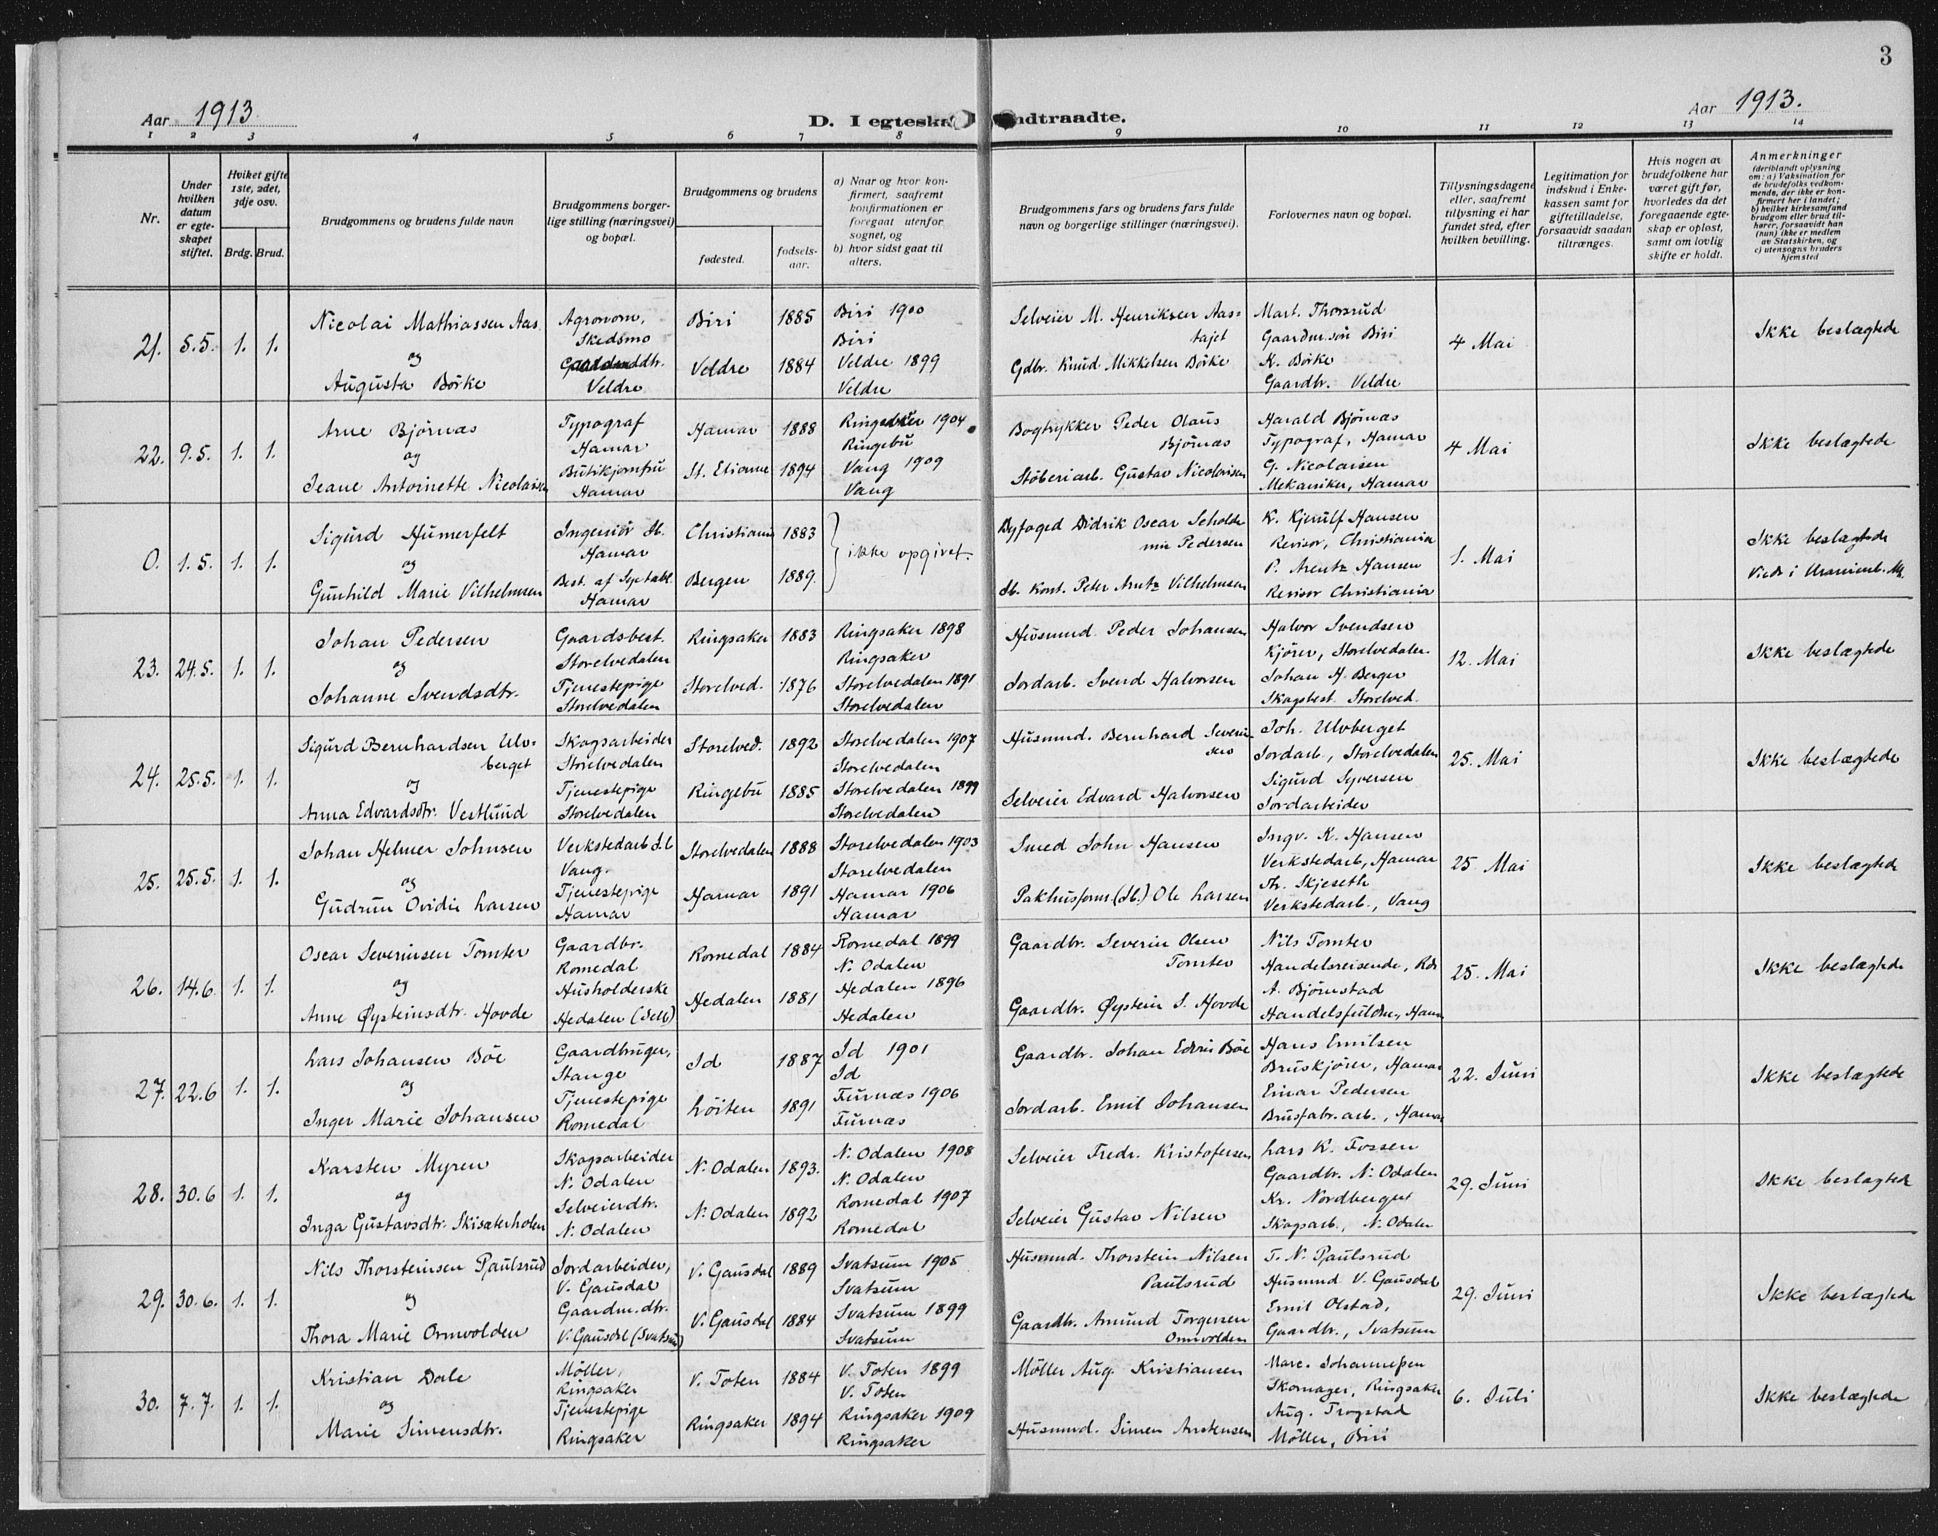 3
Aar 1913
D. I egteska
ndtraadte.
Aar 1913.
1 2 3 4 5 6 7 8 9 10 11 12 13 14
Nr.
Under hvilken datum er egteskapet stiftet.
Hviket gifte 1ste, 2det, 3dje osv.
Brdg. Brud.
Brudgommens og brudens fulde navn
Brudgommens borgerlige stilling (næringsvei) og bopæl.
Brudgommens og brudens
fødested.
fødselsaar.
a) Naar og hvor konfirmert, saafremt konfirmationen er foregaat utenfor sognet, og
b) hvor sidst gaat til alters.
Brudgommens fars og brudens fars fulde navn og borgerlige stillinger (næringsvei).
Forlovernes navn og bopæl.
Tillysningsdagene eller, saafremt tillysning ei har fundet sted, efter hvilken bevilling.
Legitimation for indskud i Enkekassen samt for giftetilladelse, forsaavidt saadan tiltrænges.
Hvis nogen av brudefolkene har været gift før, hvorledes da det foregaaende egteskap er opløst, samt om lovlig skifte er holdt.
Anmerkninger
(deriblandt oplysning om: a) Vaksination for de brudefolks vedkommende, der ikke er konfirmert her i landet; b) hvilket kirkesamfund brudgom eller brud tilhører, forsaavidt han (hun) ikke er medlem av Statskirken, og c) utensogns bruders hjemsted
21. 5.5. 1. 1. Nicolai Mathiassen Aas Agronom, Biri 1885 Biri 1900 Selveier M. Henriksen Aas- Mart. Thorsrud 4 Mai Ikke beslægtede
og Skedsmo Biri tajet Gaardm.søn Biri
Augusta Börke Veldre 1884 Veldre 1899 Gdbr. Knud Mikkelsen Börke K. Börke
Veldre Veldre Gaardbr. Veldre
22. 9.5. 1. 1. Arne Bjørnæs Typograf Hamar 1888 Ringebu 1904 Bogtrykker Peder Olaus Harald Bjørnæs 4 Mai Ikke beslægtede
og Hamar Ringebu Bjørnæs Typograf, Hamar
Jeane Antoinette Nicolaisen Butikjomfru St. Etienne 1894 Vang 1909 Støberiarb. Gustav Nicolaisen G. Nicolaisen
Hamar Vang Mekaniker, Hamar
0. 1.5. 1. 1. Sigurd Humerfelt Ingeniør Christiania 1883 ikke opgivet. Byfoged Didrik Oscar K. Kjerulf Hansen 1. Mai Ikke beslægtede
og Hamar Pedersen Revisor, Christiania
Gunhild Marie Vilhelmsen Best. af Bergen 1889. Peter Arntz Vilhelmsen P. Arentz Hansen Viede i Uranienb.
Hamar Revisor Christiania
23. 24.5. 1. 1. Johan Pedersen Gaardsbest. Ringsaker 1883 Ringsaker 1898 Husmnd. Peder Johansen Halvor Svendsen 12. Mai Ikke beslægtede
og Storelvedalen Ringsaker Kjører, Storelvedalen
Johanne Svendsdtr. Tjenestepige Storelved. 1876 Storelvedalen 1891 Jordarb. Svend Halvorsen Johan H. Berger
Storelvedalen Storelvedalen Skogsbest. Storelved.
24. 25.5. 1. 1. Sigurd Bernhardsen Ulv- Skogsarbeider Storelved. 1892 Storelvedalen 1907 Husmnd. Bernhard Severin- Joh. Ulvberget 25. Mai Ikke beslægtede
berget Storelvedalen Storelvedalen sen Jordarb., Storelvedalen
og Tjenestepige Ringebu 1885 Storelvedalen 1899 Selveier Edvard Halvorsen Sigurd Syversen
Anna Edvardsdtr. Vestlund Storelvedalen Storelvedalen Jordarbeider
25. 25.5. 1. 1. Johan Helmer Johnsen Verkstedarb Storelvedalen 1888 Storelvedalen 1903 Smed John Hansen Ingv. K. Hansen 25. Mai Ikke beslægtede
og Vang. Storelvedalen Verkstedarb, Hamar
Gudrun Ovidie Larsen Tjenestepige Hamar 1891 Hamar 1906 Pakhusform. Ole Larsen Th. Skjeseth
Hamar Hamar Verkstedarb., Vang
26. 14.6. 1. 1. Oscar Severinsen Tomter Gaardbr. Romedal 1884 Romedal 1899 Gaardbr. Severin Olsen Nils Tomter 25. Mai Ikke beslægtede
og Romedal N. Odalen Tomter Handelsreisende,
Anne Øysteinsdtr. Hovde Husholderske Hedalen 1881 Hedalen 1896 Gaardbr. Øystein S. Hovde A. Bjørnstad
Hedalen Hedalen
27. 22.6 1. 1. Lars Johansen Böe Gaardbruger, Id 1887 Id 1901 Gaardbr. Johan Böe Hans Emilsen 22. Juni Ikke beslægtede
og Stange Id Bruskjører, Hamar
Inger Marie Johansen Tjenestepige Löiten 1891 Furnæs 1906 Jordarb. Emil Johansen Einar Pedersen
Romedal Furnæs Brusfabr.arb., Hamar
28. 30.6 1. 1. Karsten Myren Skogsarbeider N. Odalen 1893. N. Odalen 1908 Selveier Fredr. Kristofersen Lars K. Fossen 29. Juni Ikke beslægtede
og N. Odalen N. Odalen Gaardbr. N. Odalen
Inga Gustavsdtr. Skisæterholen Selveierdtr. N. Odalen 1892 Romedal 1907 Selveier Gustav Nilsen Kr. Nordberget
N. Odalen Romedal Skogsarb., N. Odalen
29. 30.6. 1. 1. Nils Thorsteinsen Paulsrud Jordarbeider, V. Gausdal 1889 Svatsum 1905 Husmnd. Thorstein Nilsen T. N. Paulsrud 29. Juni Ikke beslægtede
og V. Gausdal Svatsum Paulsrud Husmnd V. Gausdal
Thora Marie Ormvolden Gaardm.dtr. V. Gausdal 1884 Svatsum 1899 Gaardbr. Amund Torgersen Emil Olstad,
V. Gausdal (Svatsum) Svatsum Ormvolden Gaardbr., Svatsum
30. 7.7. 1. 1. Kristian Dale Møller, V. Toten 1884 V. Toten 1899 Møller Aug. Kristiansen Marc. Johannessen 6. Juli Ikke beslægtede
og Ringsaker V. Toten Skomager, Ringsaker
Marie Simensdtr. Tjenestepige Ringsaker 1894 Ringsaker 1909 Husmnd. Simen Arntsensen Aug. Trogstad
Ringsaker Ringsaker Møller, Biri